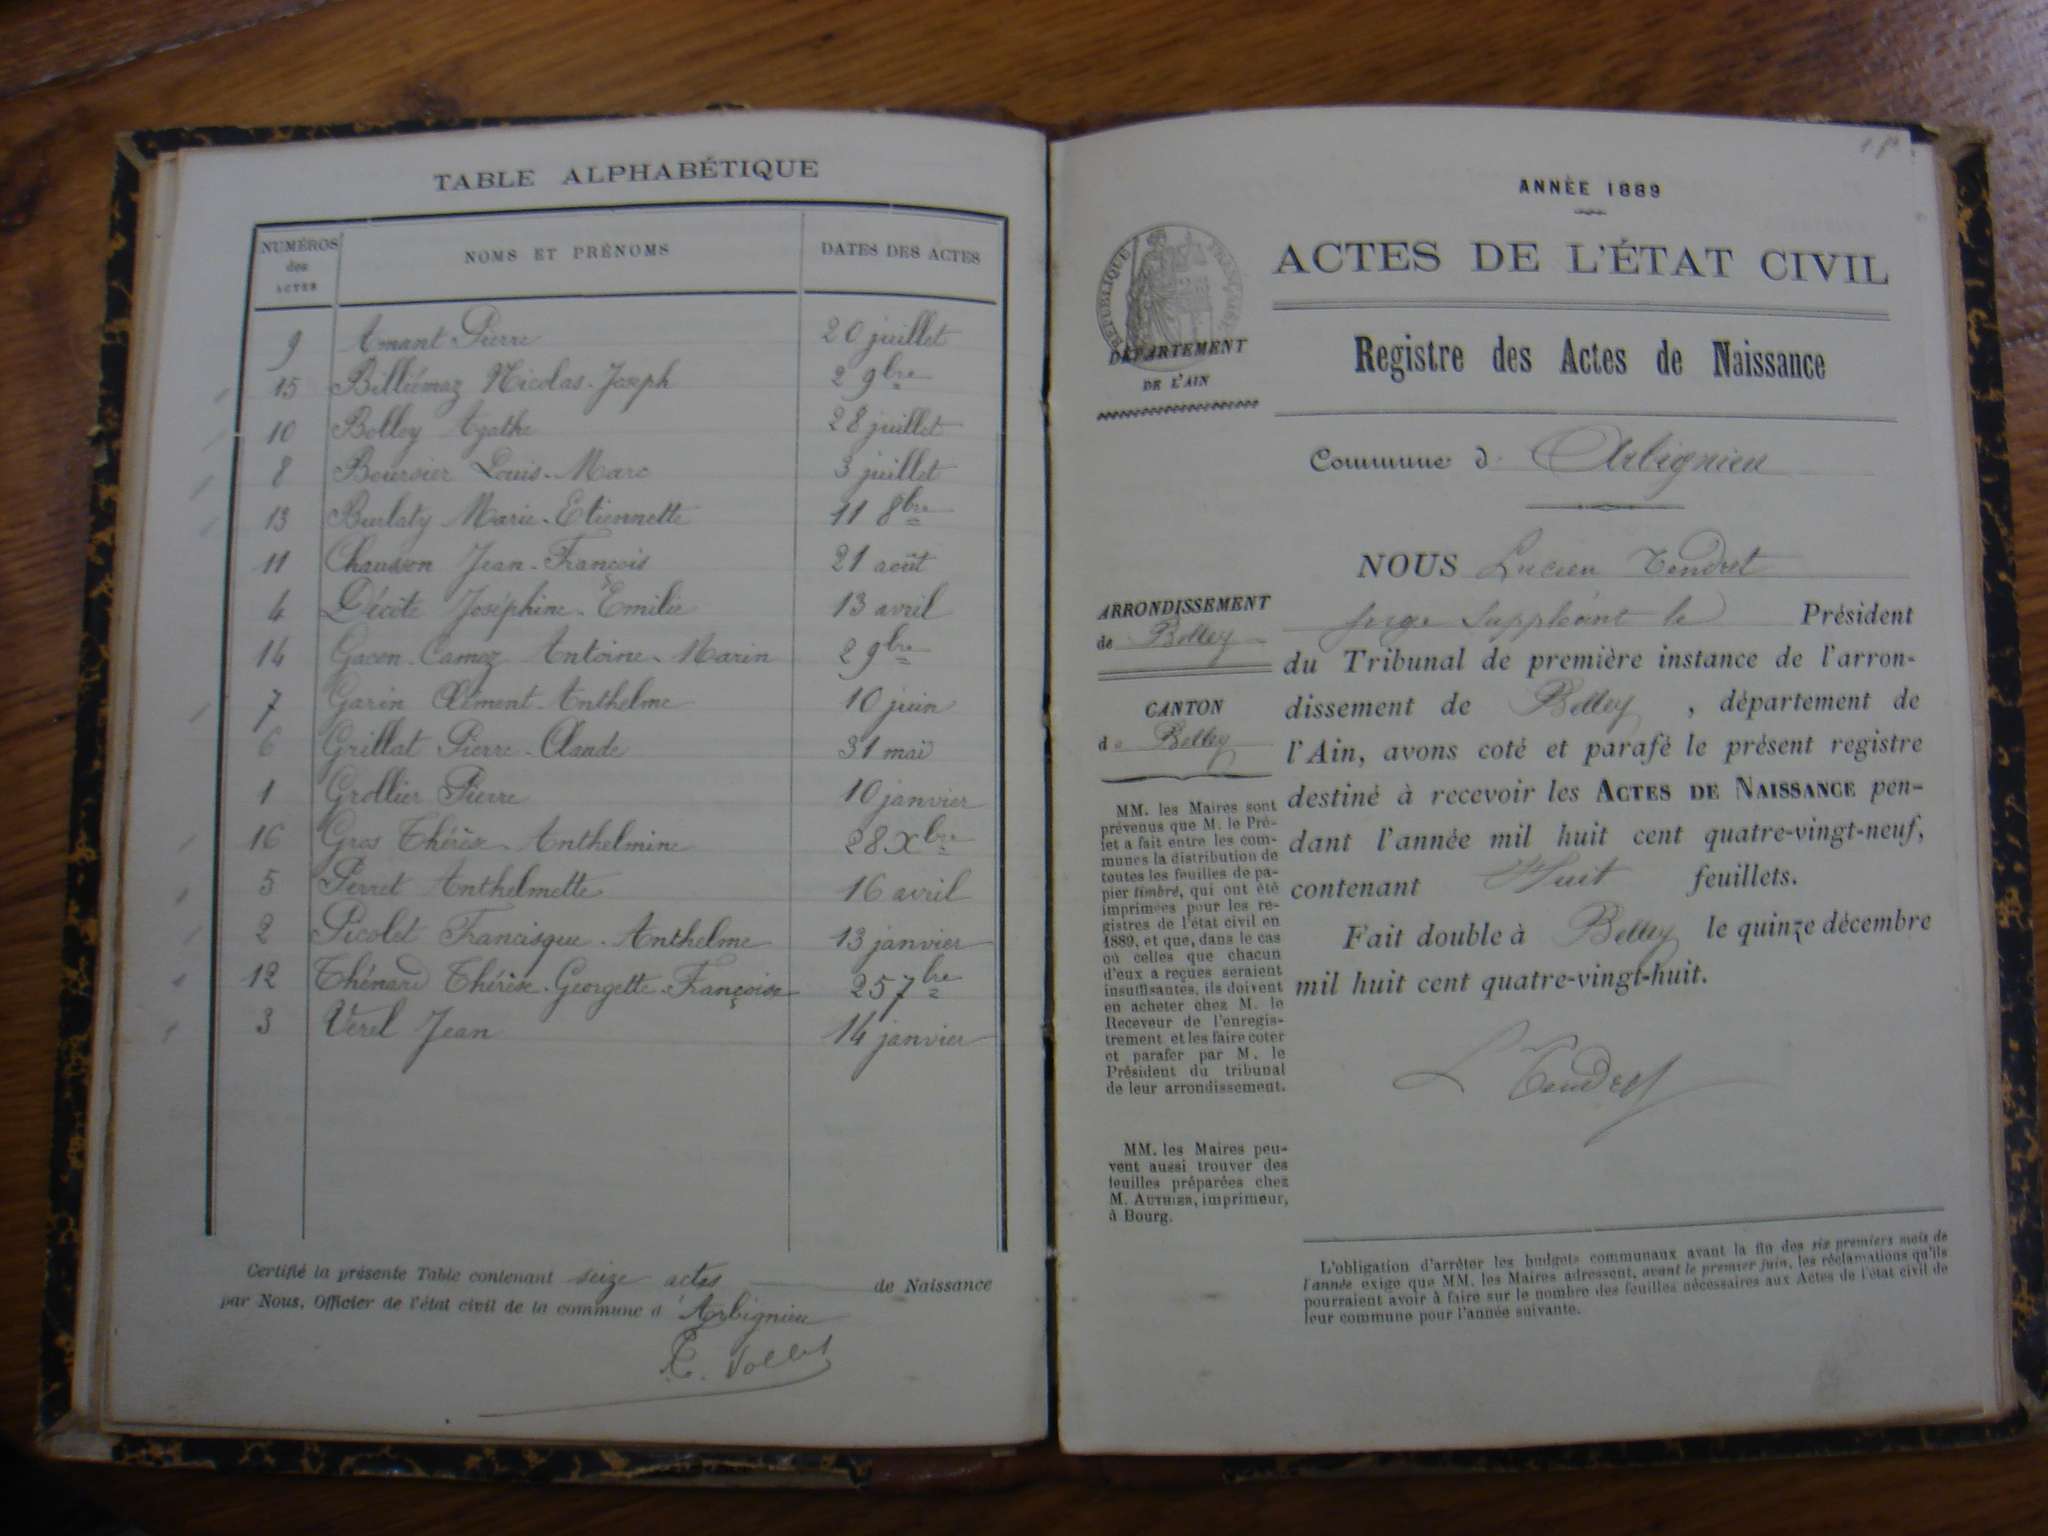 TABLE ALPHABÉTIQUE
NUMÉROS des ACTES NOMS ET PRÉNOMS DATES DES ACTES
9 Amant Pierre 20 juillet
15 Billiémaz Nicolas-Joseph 2 9bre
10 Bolley Agathe 28 juillet
8 Boursier Louis-Marc 3 juillet
13 Burlaty Marie-Etiennette 11 8bre
11 Chauson Jean-François 21 août
4 Décôte Joséphine-Emilie 13 avril
14 Gacon-Camoz Antoine-Marin 2 9bre
7 Garin Clément-Anthelme 10 juin
6 Grillat Pierre-Claude 31 mai
1 Grollier Pierre 10 janvier
16 Gros Thérèse-Anthelmine 28 Xbre
5 Perret Anthelmette 16 avril
2 Picolet Francisque-Anthelme 13 janvier
12 Thénard Thérèse-Georgette-Françoise 25 7bre
3 Verel Jean 14 janvier
Certifié la présente Table contenant seize actes de Naissance
par Nous, Officier de l'état civil de la commune d'Arbignieu
ANNÉE 1889
RÉPUBLIQUE FRANÇAISE
ACTES DE L'ÉTAT CIVIL
DÉPARTEMENT
DE L'AIN
Registre des Actes de Naissance
Commune d' Arbignieu
ARRONDISSEMENT
de Belley
CANTON
de Belley
MM. les Maires sont
prévenus que M. le Pré-
fet a fait entre les com-
munes la distribution de
toutes les feuilles de pa-
pier timbré, qui ont été
imprimées pour les re-
gistres de l'état civil en
1889, et que, dans le cas
où celles que chacun
d'eux a reçues seraient
insuffisantes, ils doivent
en acheter chez M. le
Receveur de l'enregis-
trement et les faire coter
et parafer par M. le
Président du tribunal
de leur arrondissement.
MM. les Maires peu-
vent aussi trouver des
feuilles préparées chez
M. AUTHIER, imprimeur,
à Bourg.
NOUS Lucien Tendret
juge suppléant le Président
du Tribunal de première instance de l'arron-
dissement de Belley, département de
l'Ain, avons coté et parafé le présent registre
destiné à recevoir les ACTES DE NAISSANCE pen-
dant l'année mil huit cent quatre-vingt-neuf,
contenant Huit feuillets.
Fait double à Belley le quinze décembre
mil huit cent quatre-vingt-huit.
L Tendret
L'obligation d'arrêter les budgets communaux avant la fin des six premiers mois de
l'année exige que MM. les Maires adressent, avant le premier juin, les réclamations qu'ils
pourraient avoir à faire sur le nombre des feuilles nécessaires aux Actes de l'état civil de
leur commune pour l'année suivante.